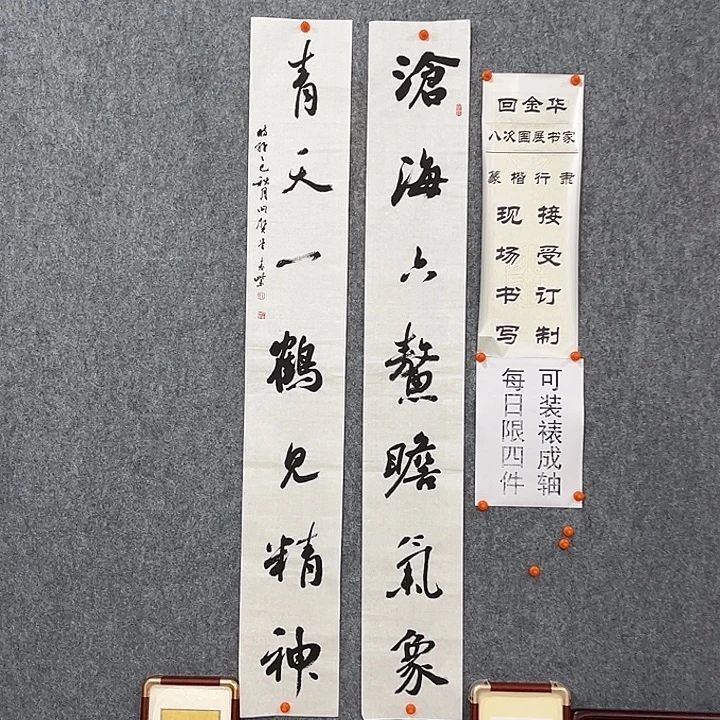 滄海六鰲瞻氣象
青天一鶴見精神
時維乙巳秋月
回金华
八次国展书家
篆楷行隶
接受订制
现场书写
可装裱成轴
每日限四件